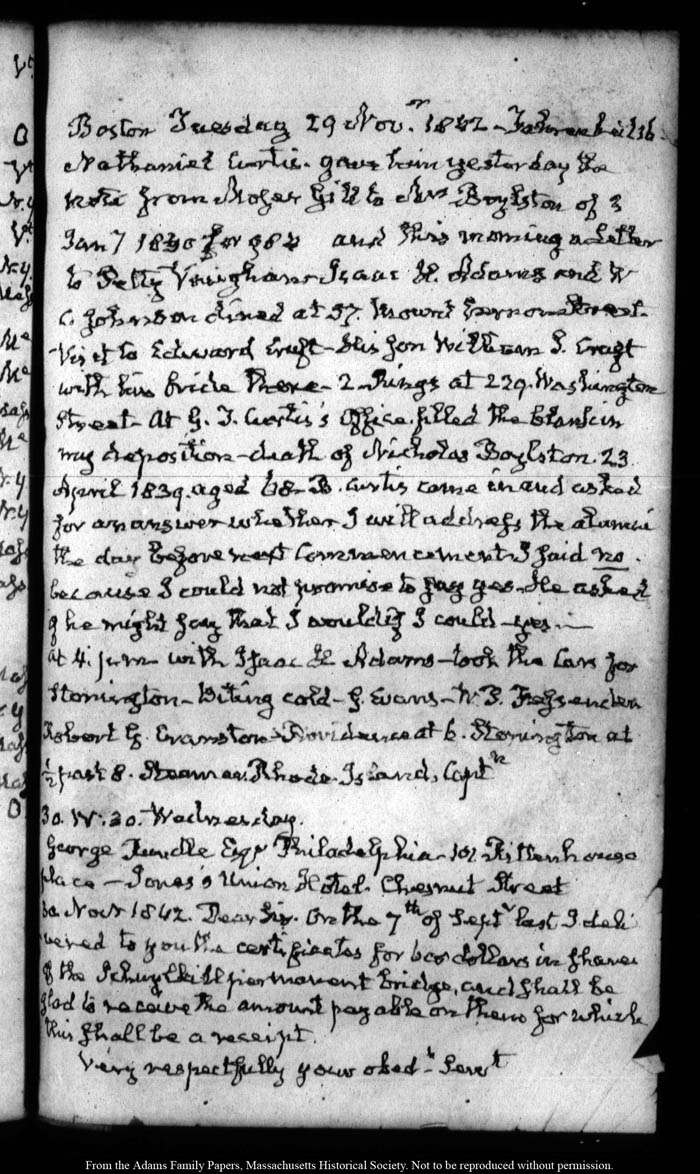 Boston Tuesday 29 Nov.r 1842 - Fahrenheit 16
Nathaniel Curtis. gave him yesterday the
note from Moses Gill to Mrs Boylston of 3
Jany 1840 for 984 and this morning a Letter
to Petty Vaughan Isaac H. Adams and W
C Johnson dined at 57. Mount Vernon Street.
Visit to Edward Cruft - His Son William S. Cruft
with his bride there - 2 Rings at 229. Washington
Street - At G. T. Curtis's Office filled the blank in
my deposition - death of Nicholas Boylston. 23
April 1839. aged 68 - B. Curtis came in and asked
for an answer whether I will address the alumni
the day before next Commencement I said no.
because I could not promise to say yes. He asked
if he might say that I would if I could - yes -
at 4. p.m. with Isaac H. Adams - took the Cars for
Stonington - Biting cold - G. Evans - W. P. Fessenden
Robert G. Cranston - Providence at 6. Stonington at
½ past 8. Steamer Rhode Island, Captn
30. W. 30. Wednesday.
George Rundle Esqr Philadelphia - Rittenhouse
place - Jones's Union Hotel. Chesnut Street
30 Novr 1842. Dear Sir. On the 7th of Septr last I deli
vered to you the certificates for 600 dollars in shares
of the Schuylkill permanent bridge, and shall be
glad to receive the amount payable on them for which
this shall be a receipt.
Very respectfully your obedt Servt
From the Adams Family Papers, Massachusetts Historical Society. Not to be reproduced without permission.